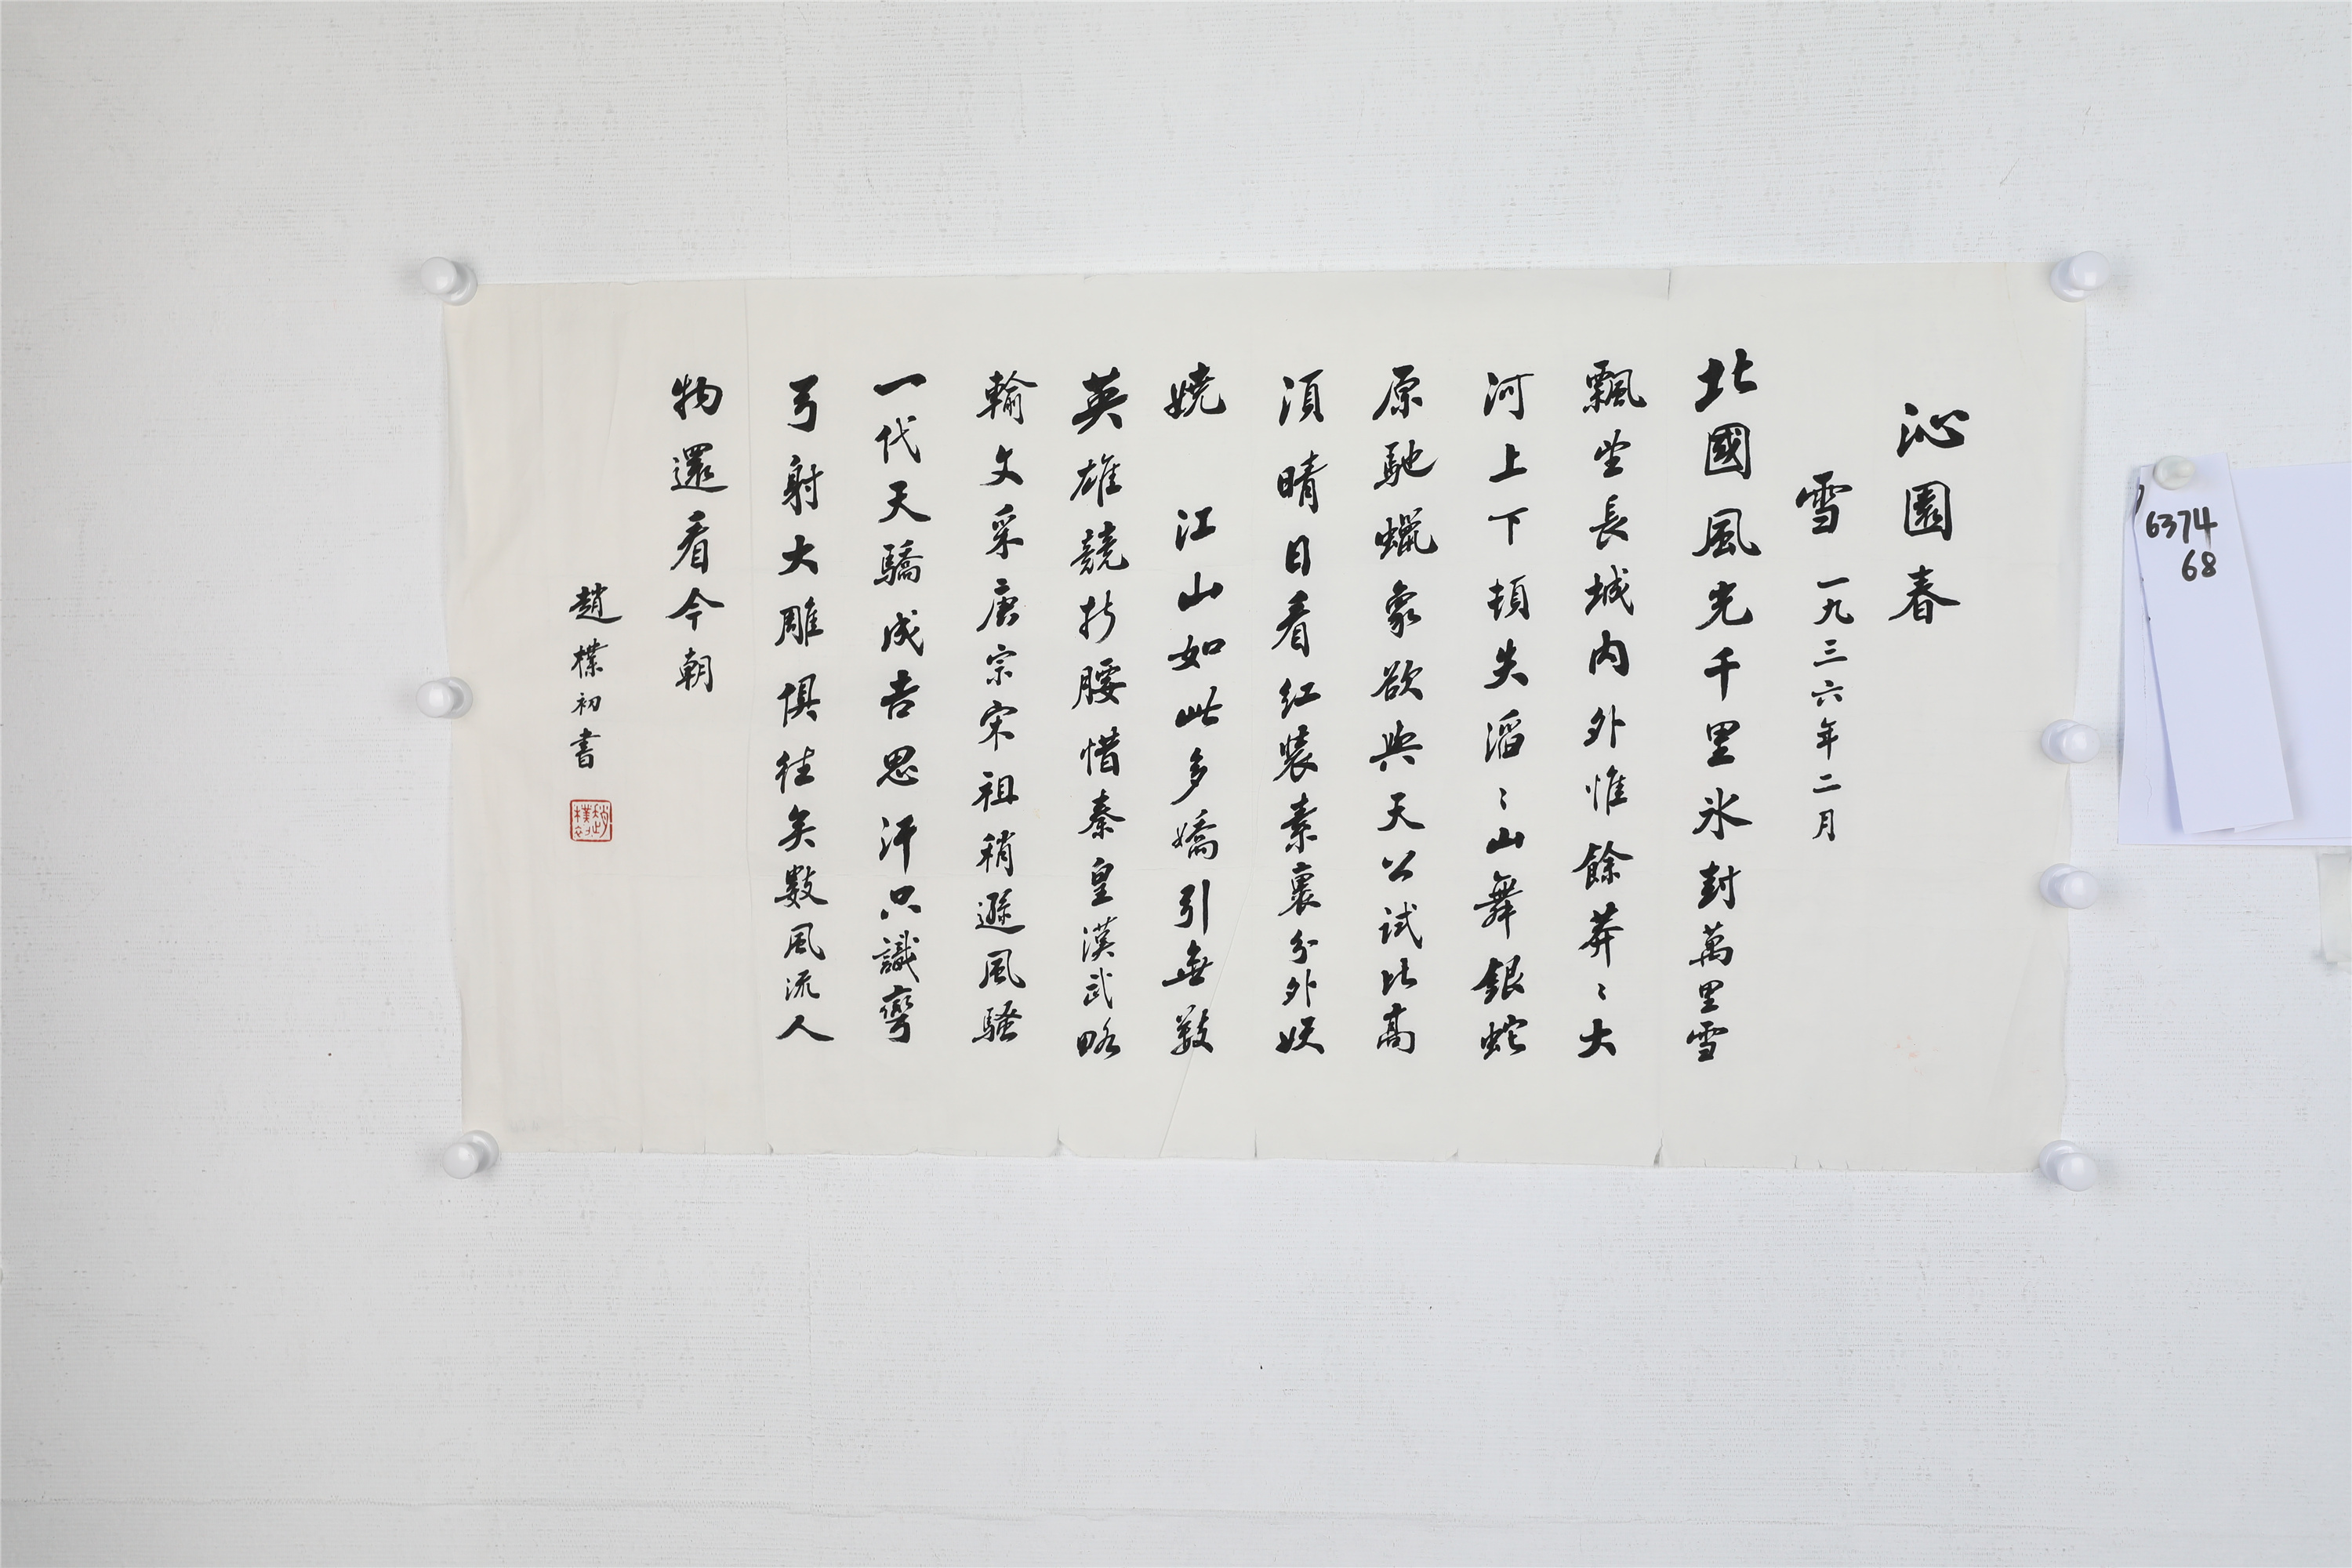 沁園春
雪 一九三六年二月
北國風光千里氷封萬里雪
飄望長城内外惟餘莽〻大
河上下頓失滔〻山舞銀蛇
原馳蠟象欲與天公試比高
須晴日看红裝素裹分外妖
嬈 江山如此多嬌引無數
英雄競折腰惜秦皇漢武略
輸文采唐宗宋祖稍遜風騷
一代天驕成吉思汗只識彎
弓射大雕俱往矣數風流人
物還看今朝
趙樸初書
趙樸初
6374
68